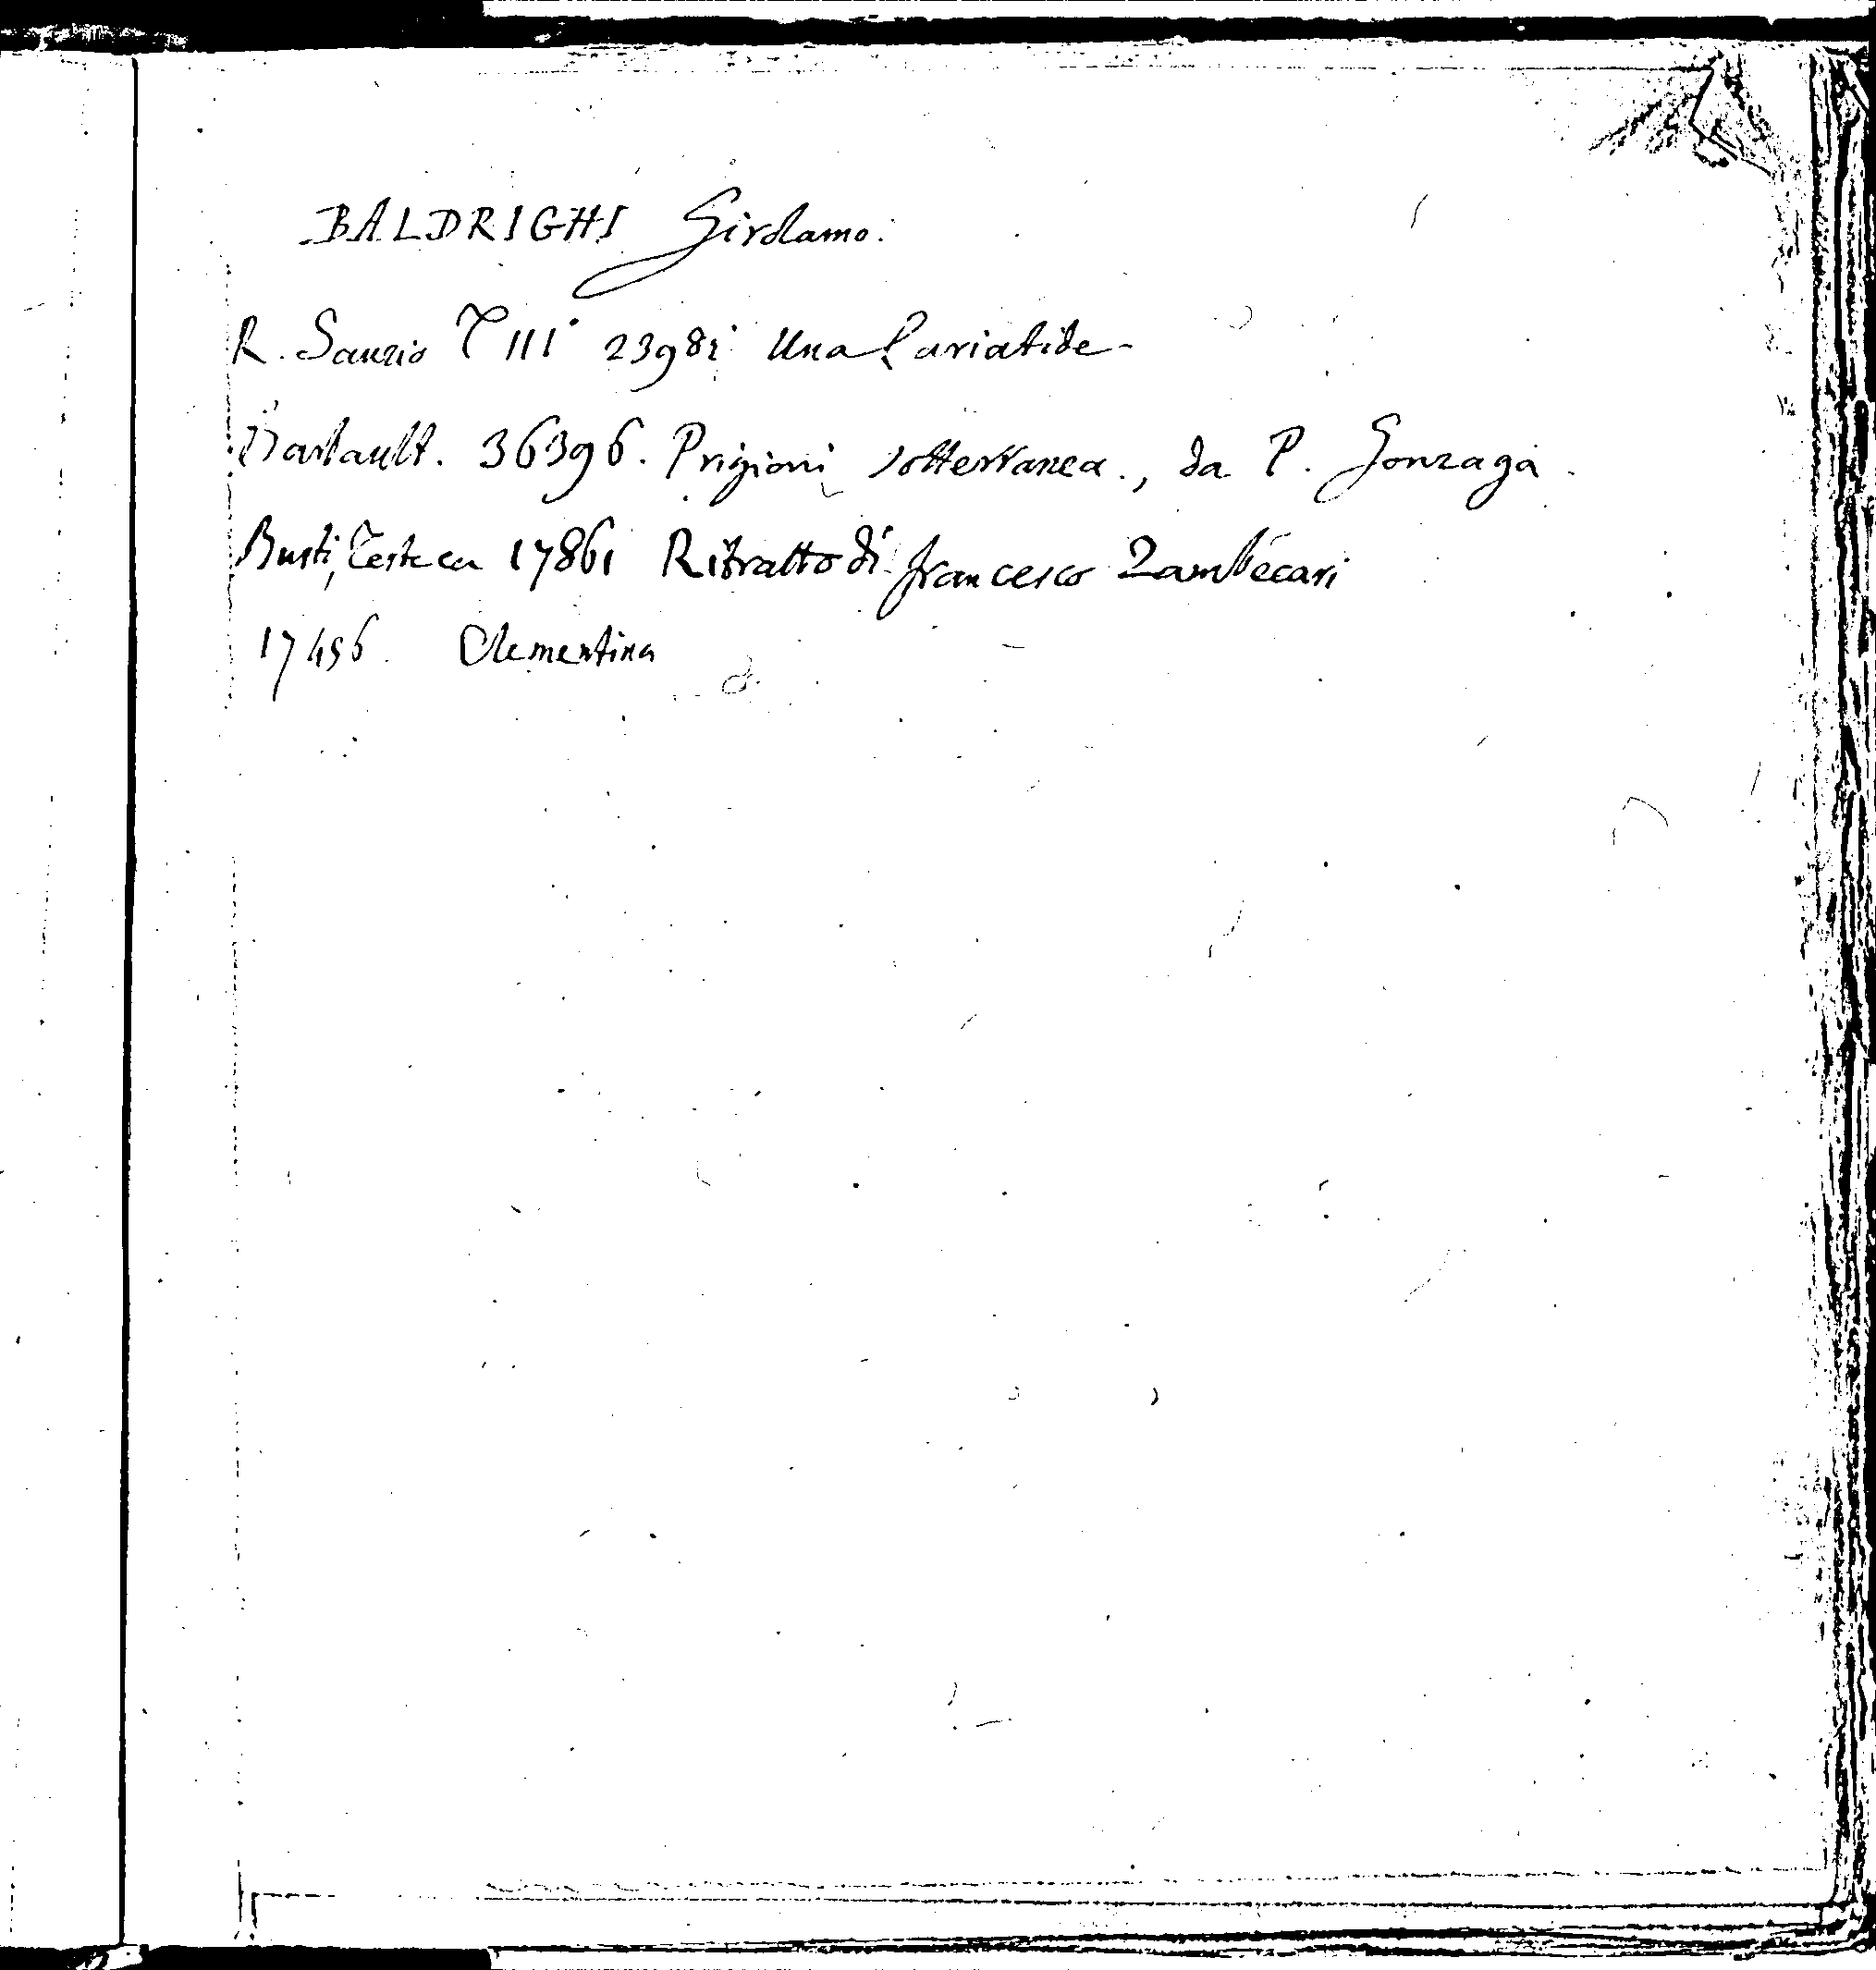 BALDRIGHI Girolamo.
R. Sanzio T III 23981 Una Cariatide
Barbault. 36396. Prigioni sotterranea., da P. Gonzaga.
Busti, Teste ca 17861 Ritratto di francesco Zambecari
17456. Clementina